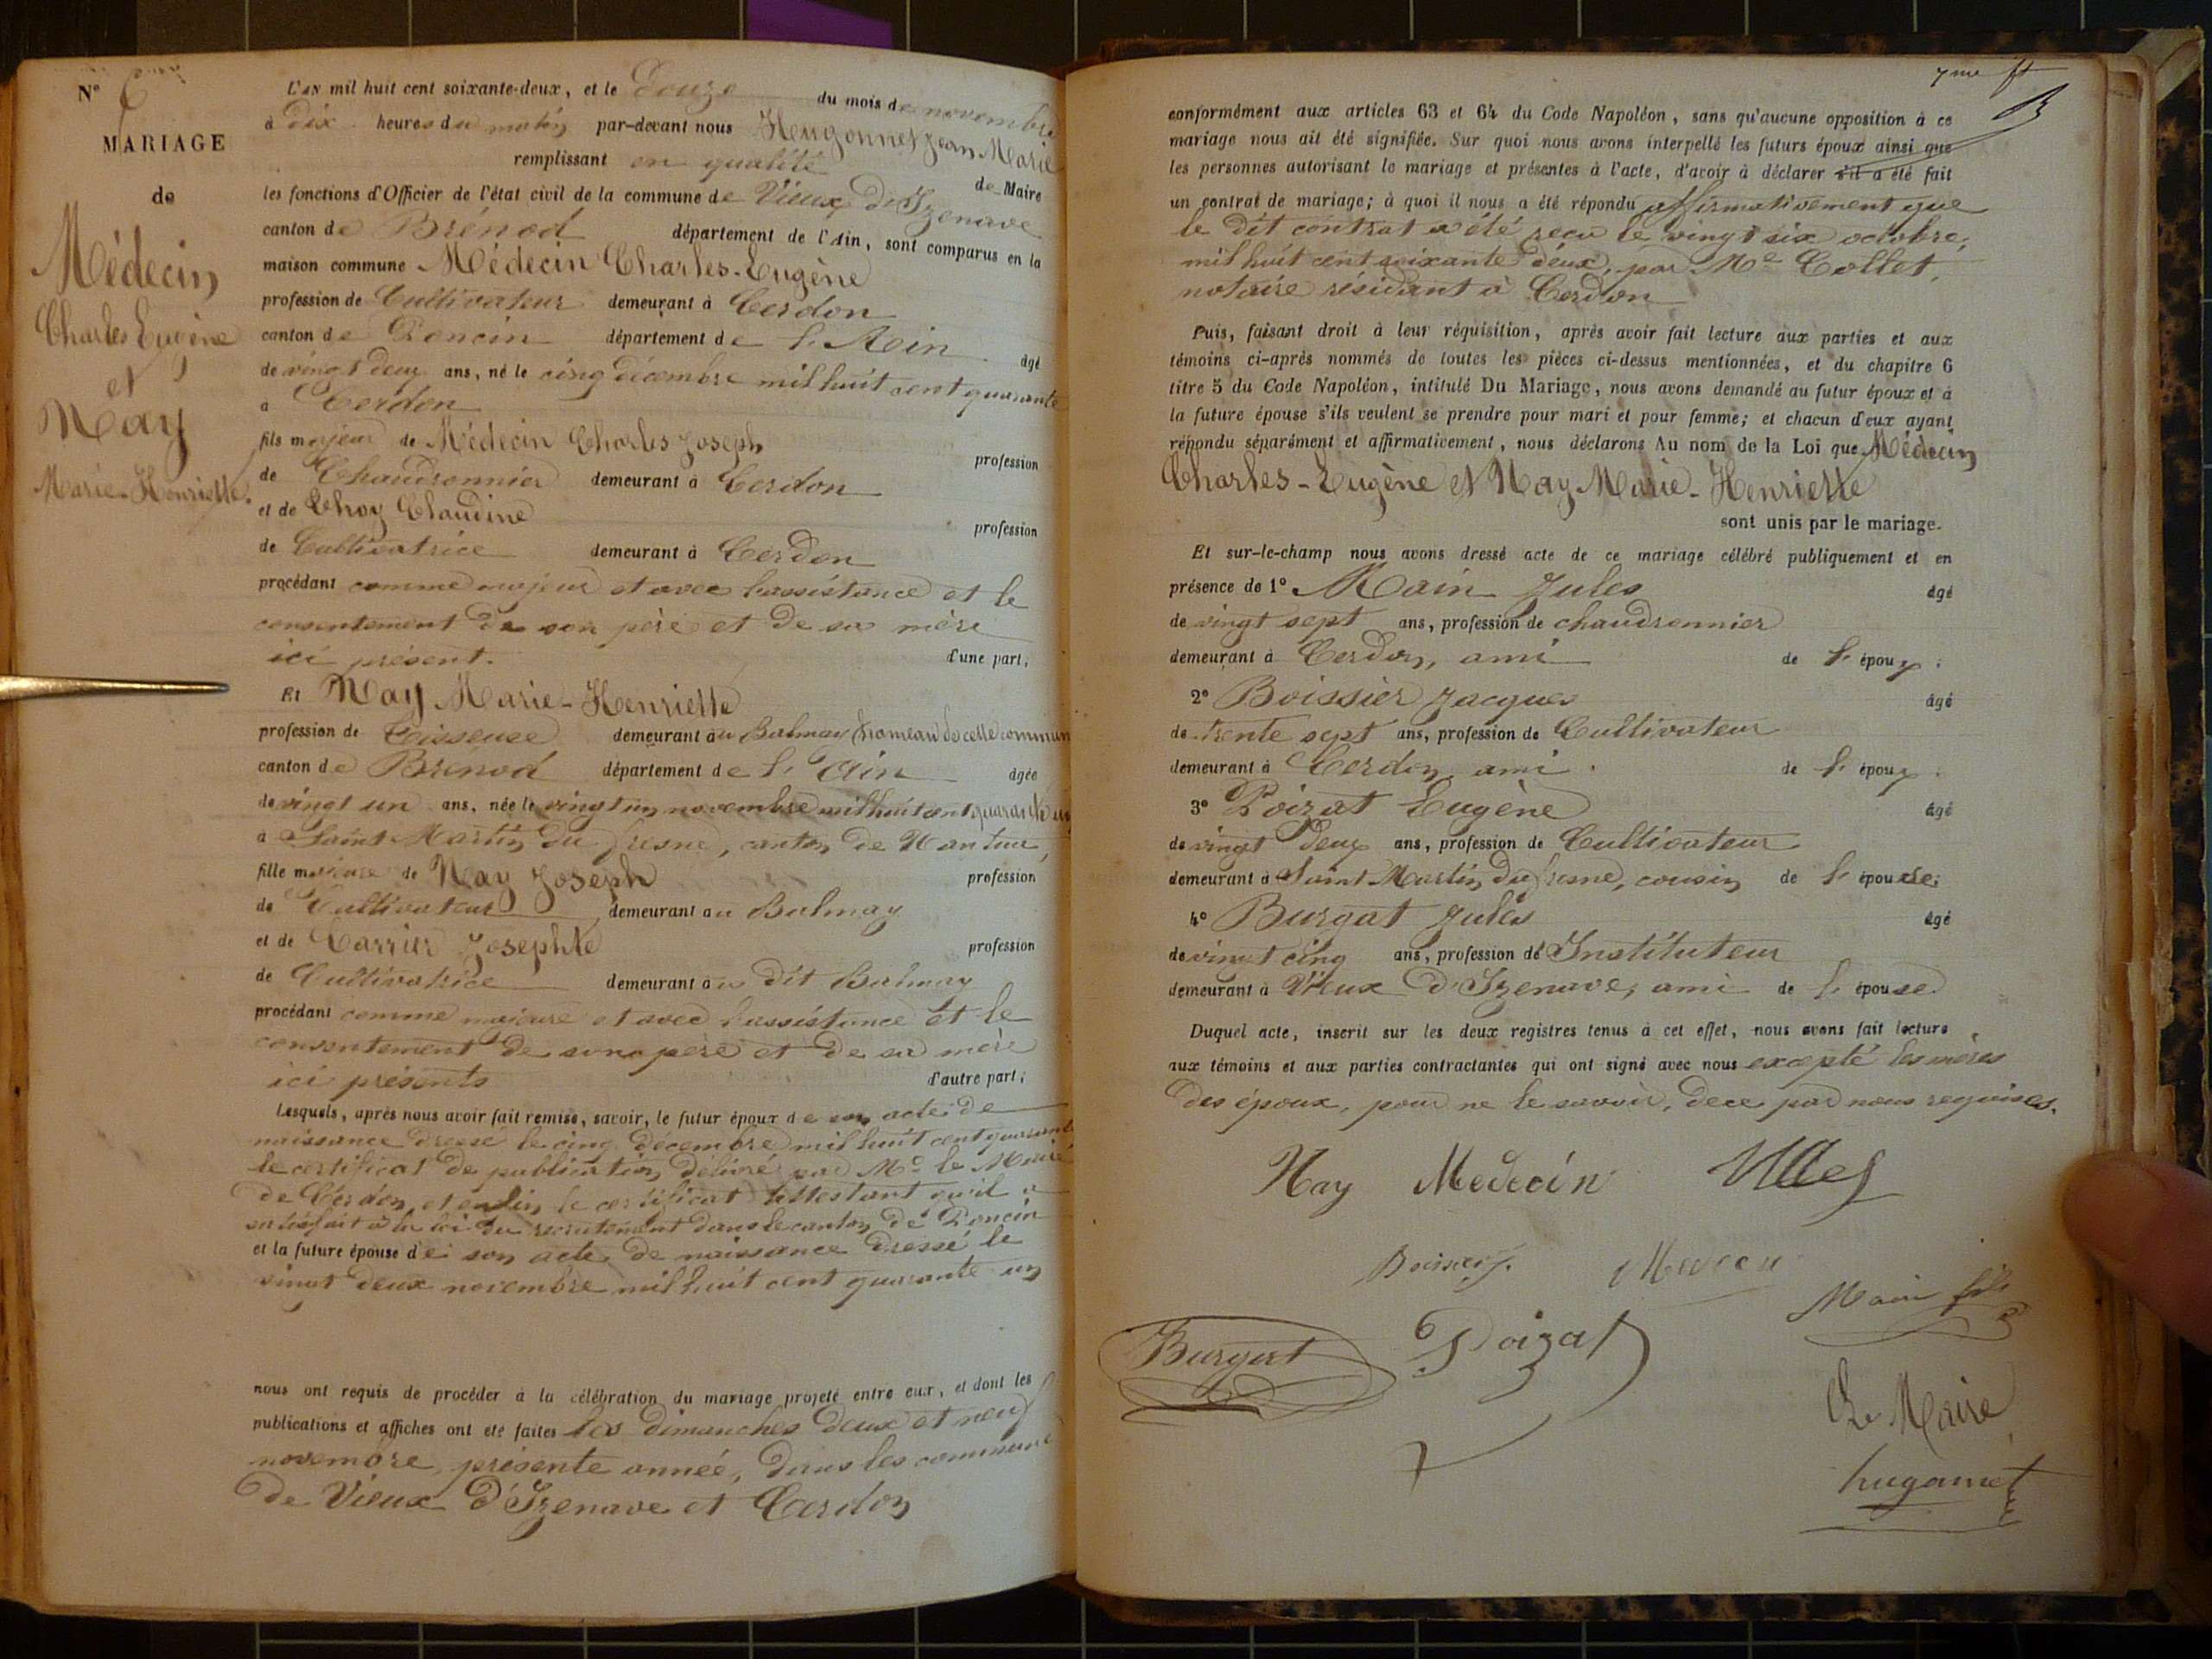 N° 6
MARIAGE
de
Médecin
Charles Eugène
et
Nay
Marie-Henriette.
L'AN mil huit cent soixante-deux, et le Douze du mois de novembre
à dix heures du matin par-devant nous Hugonnet Jean Marie
remplissant en qualité de Maire
les fonctions d'Officier de l'état civil de la commune de Vieux D'Izenave
canton de Brénod département de l'Ain, sont comparus en la
maison commune Médecin Charles-Eugène
profession de Cultivateur demeurant à Cerdon
canton de Poncin département de l'Ain âgé
de vingt deux ans, né le cinq décembre mil huit cent quarante
à Cerdon
fils majeur de Médecin Charles Joseph profession
de Chaudronnier demeurant à Cerdon
et de Choy Claudine profession
de Cultivatrice demeurant à Cerdon
procédant comme majeur et avec l'assistance et le
consentement de son père et de sa mère
ici présent. d'une part;
Et Nay Marie-Henriette
profession de demeurant au Balmay (hameau de cette commune
canton de Brenod département de l'Ain âgée
de vingt un ans, née le vingt un novembre mil huit cent quarante un
à Saint Martin du fresne, canton de Nantua,
fille majeure de Nay Joseph profession
de Cultivateur demeurant au Balmay
et de Carrier Josephte profession
de Cultivatrice demeurant au dit Balmay
procédant comme majeure et avec l'assistance et le
consentement de son père et de sa mère
ici présents d'autre part;
Lesquels, après nous avoir fait remise, savoir, le futur époux de son acte de
naissance dressé le cinq décembre mil huit cent quarante
le certificat de publication délivré par Mr le Maire
de Cerdon, et enfin le certificat attestant qu'il a
satisfait à la loi du recrutement dans le canton de Poncin
et la future épouse de son acte de naissance dressé le
vingt deux novembre mil huit cent quarante un
nous ont requis de procéder à la célébration du mariage projeté entre eux, et dont les
publications et affiches ont été faites les dimanches deux et neuf
novembre, présente année, dans les communes
de Vieux D'Izenave et Cerdon
7me ft
conformément aux articles 63 et 64 du Code Napoléon, sans qu'aucune opposition à ce
mariage nous ait été signifiée. Sur quoi nous avons interpellé les futurs époux ainsi que
les personnes autorisant le mariage et présentes à l'acte, d'avoir à déclarer s'il a été fait
un contrat de mariage; à quoi il nous a été répondu affirmativement que
le dit contrat a été reçu le vingt six octobre,
mil huit cent soixante deux, par Me Collet,
notaire résidant à Cerdon
Puis, faisant droit à leur réquisition, après avoir fait lecture aux parties et aux
témoins ci-après nommés de toutes les pièces ci-dessus mentionnées, et du chapitre 6
titre 5 du Code Napoléon, intitulé Du Mariage, nous avons demandé au futur époux et à
la future épouse s'ils veulent se prendre pour mari et pour femme; et chacun d'eux ayant
répondu séparément et affirmativement, nous déclarons Au nom de la Loi que Médecin
Charles-Eugène et Nay Marie-Henriette
sont unis par le mariage.
Et sur-le-champ nous avons dressé acte de ce mariage célébré publiquement et en
présence de 1° Main Jules âgé
de vingt sept ans, profession de chaudronnier
demeurant à Cerdon, ami de l'époux;
2° Boissier Jacques âgé
de trente sept ans, profession de Cultivateur
demeurant à Cerdon, ami de l'époux;
3° Poizat Eugène âgé
de vingt Deux ans, profession de Cultivateur
demeurant à Saint Martin Du fresne, cousin de l'épouse;
4° Burgat Jules âgé
de vingt cinq ans, profession de Instituteur
demeurant à Vieux D'Izenave, ami de l'épouse
Duquel acte, inscrit sur les deux registres tenus à cet effet, nous avons fait lecture
aux témoins et aux parties contractantes qui ont signé avec nous excepté les mères
des époux, pour ne le savoir, de ce par nous requises.
Nay Medecin
Medecin
Main fils
Burgat Poizat
Le Maire
hugonnet